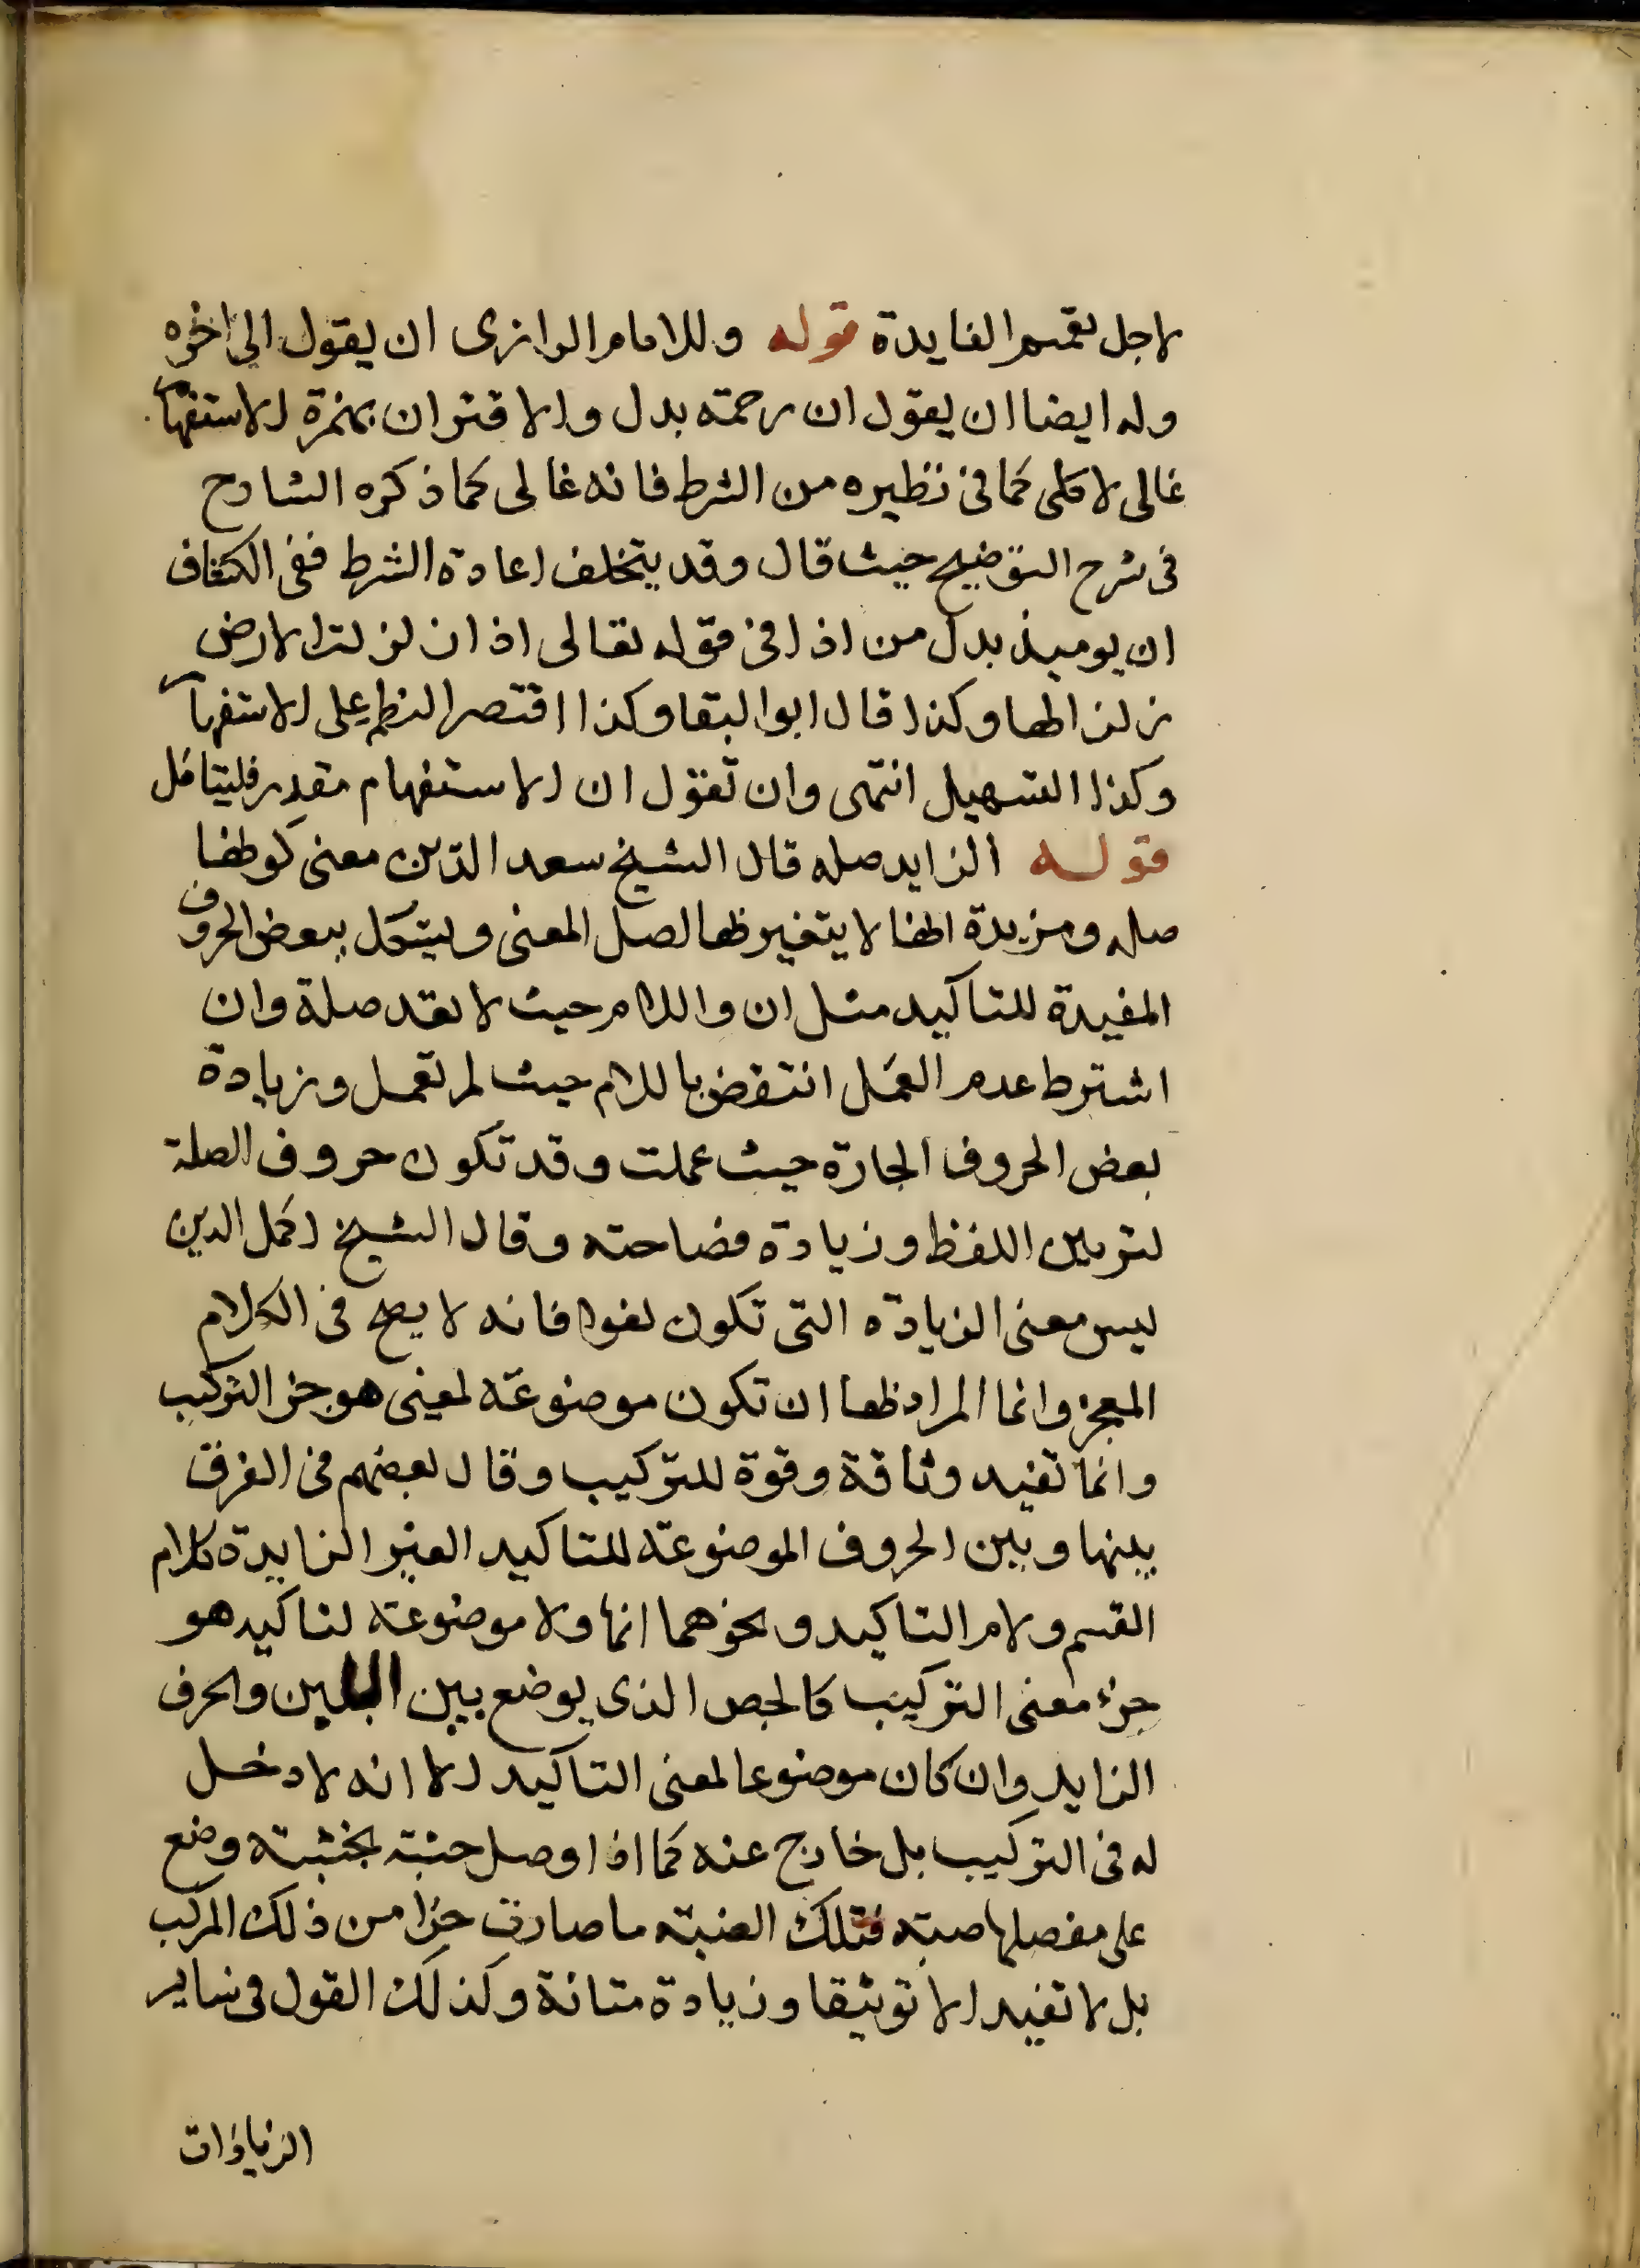 لاجل تتميم الفايدة قوله وللامام الرازى ان يقول الى اخره
وله ايضا ان يقول ان رحمته بدل والاقتران بهمزة الاستفها
غالى لا كلى كما فى نظيره من الشرط فانه غالى كما ذكره الشارح
فى شرح التوضيح حيث قال وقد يتخلف اعادة الشرط ففى الكشاف
ان يوميذ بدل من اذا فى قوله تعالى اذا زلزلت الارض
زلزالها وكذا قال ابو البقا وكذا اقتصر النظم على الاستفها
وكذا التسهيل انتهى وان تقول ان الاستفهام مقدر فليتامل
قوله الزايد صله قال الشيخ سعد الدين معنى كونها
صله ومزيدة انها لا يتغير بها اصل المعنى ويشكل ببعض الحروف
المفيدة للتاكيد مثل ان واللام حيث لا تعد صلة وان
اشترط عدم العمل انتقض باللام حيث لم تعمل وزيادة
بعض الحروف الجارة حيث عملت وقد تكون حروف الصلة
لتزيين اللفظ وزيادة فصاحته وقال الشيخ اكمل الدين
ليس معنى الزيادة التى تكون لغوا فانه لا يصح فى الكلام
المعجز وانما المراد بها ان تكون موضوعة لمعنى هو جز التركيب
وانما تفيد وثاقة وقوة للتركيب وقال بعضهم فى الفرق
بينها وبين الحروف الموضوعة للتاكيد الغير الزايدة كلام
القسم ولام التاكيد ونحوهما انها ولا موضوعة لتاكيد هو
جزء معنى التركيب كالجص الذى يوضع بين والحرف
الزايد وان كان موضوعا لمعنى التاكيد الا انه لا دخل
له فى التركيب بل خارج عنه كما اذا وصل خشبة بخشبة وضع
على مفصلها ضبة فتلك الضبة ما صارت جزا من ذلك المركب
بل لا تفيد الا توثيقا وزيادة متانة وكذلك القول فى ساير
الزيادات